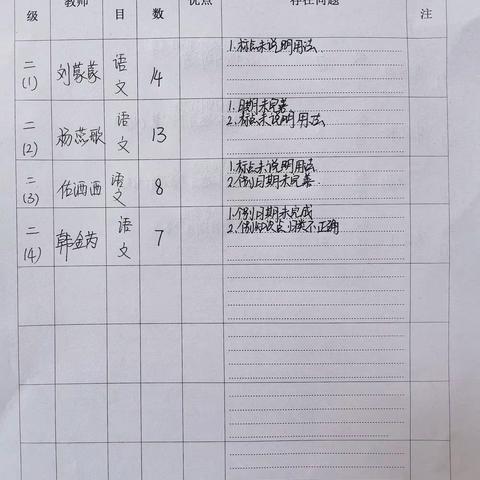 级 教师 目 数 优点 存在问题 注
二(1) 刘蒙蒙 语文 14 1.标点未说明用法
二(2) 杨燕歌 语文 13 1.日期未完善
2.标点未说明用法
二(3) 佑西西 语文 8 1.标点未说明用法
2.个别日期未完善
二(4) 韩金芮 语文 7 1.个别日期未完成
2.个别知识点归类不正确